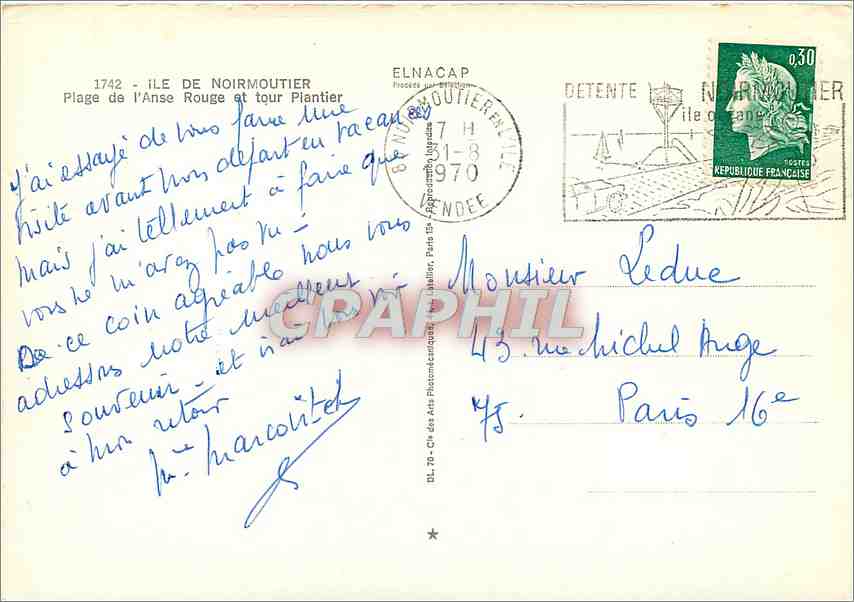 1742 - ILE DE NOIRMOUTIER
Plage de l'Anse Rouge et tour Plantier
ELNACAP
Procédé par Sélection
J'ai essayé de vous faire une
visite avant mon départ en vacances
mais j'ai tellement à faire que
vous ne m'avez pas vu -
De ce coin agréable nous vous
adressons notre meilleur
souvenir - et irai vous voir
à mon retour
Mme Marcoutet
85 NOIRMOUTIER EN L'ILE
17 H
31-8
1970
VENDEE
DETENTE NOIRMOUTIER
île océane
0,30
POSTES
REPUBLIQUE FRANÇAISE
DL. 70 - Cie des Arts Photomécaniques, Latellier, Paris 15e - Reproduction Interdite
Monsieur Leduc
43. rue Michel Ange
75. Paris 16e
CPAPHIL